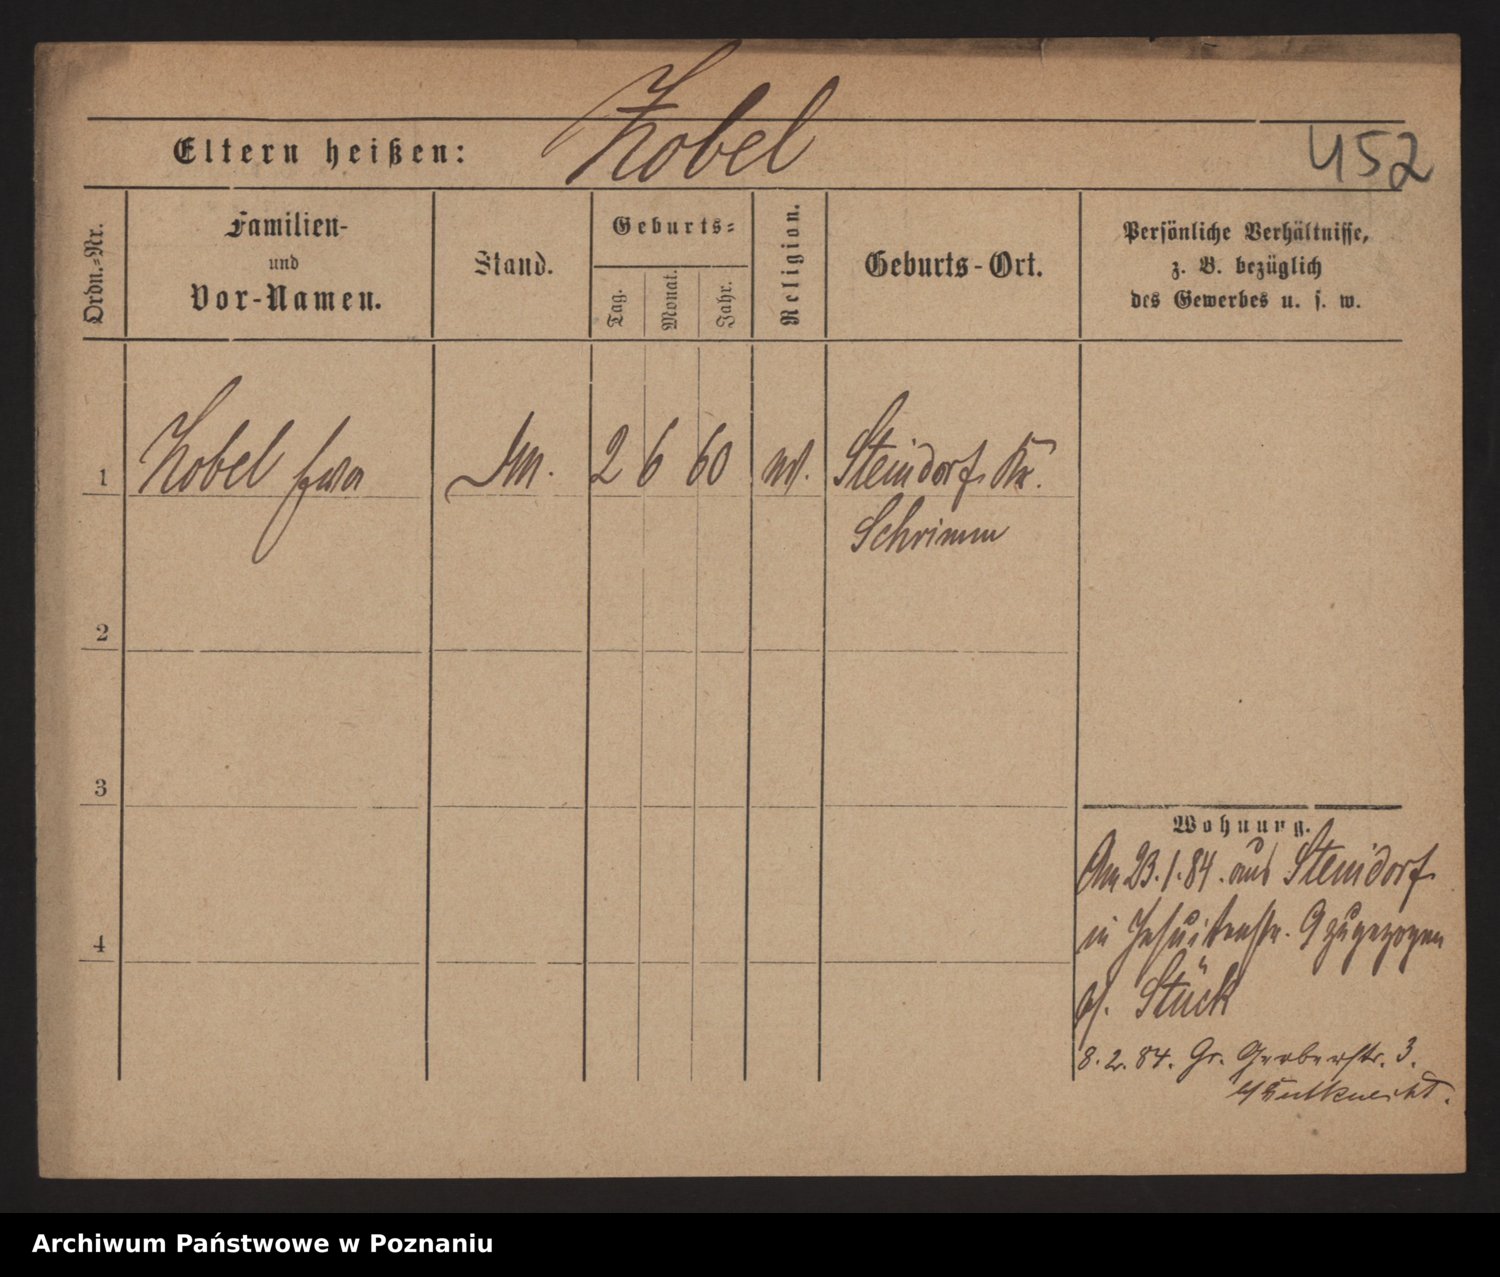 Zobel
Eltern heißen:
452
Ordn.-Nr.
Familien-
und
Vor-Namen.
Stand.
Geburts-
Tag.
Monat.
Jahr.
Religion.
Geburts-Ort.
Persönliche Verhältnisse,
z. B. bezüglich
des Gewerbes u. s. w.
1 Zobel Eva 2 6 60 Steindorf Kr.
Schrimm
2
3
4
Wohnung.
Am 23.1.84. aus Steindorf
in Jesuitenstr. 9 zugezogen
Stück
8.2.84. Gr. Gerberstr. 3.
b/ Gutknecht.
Archiwum Państwowe w Poznaniu